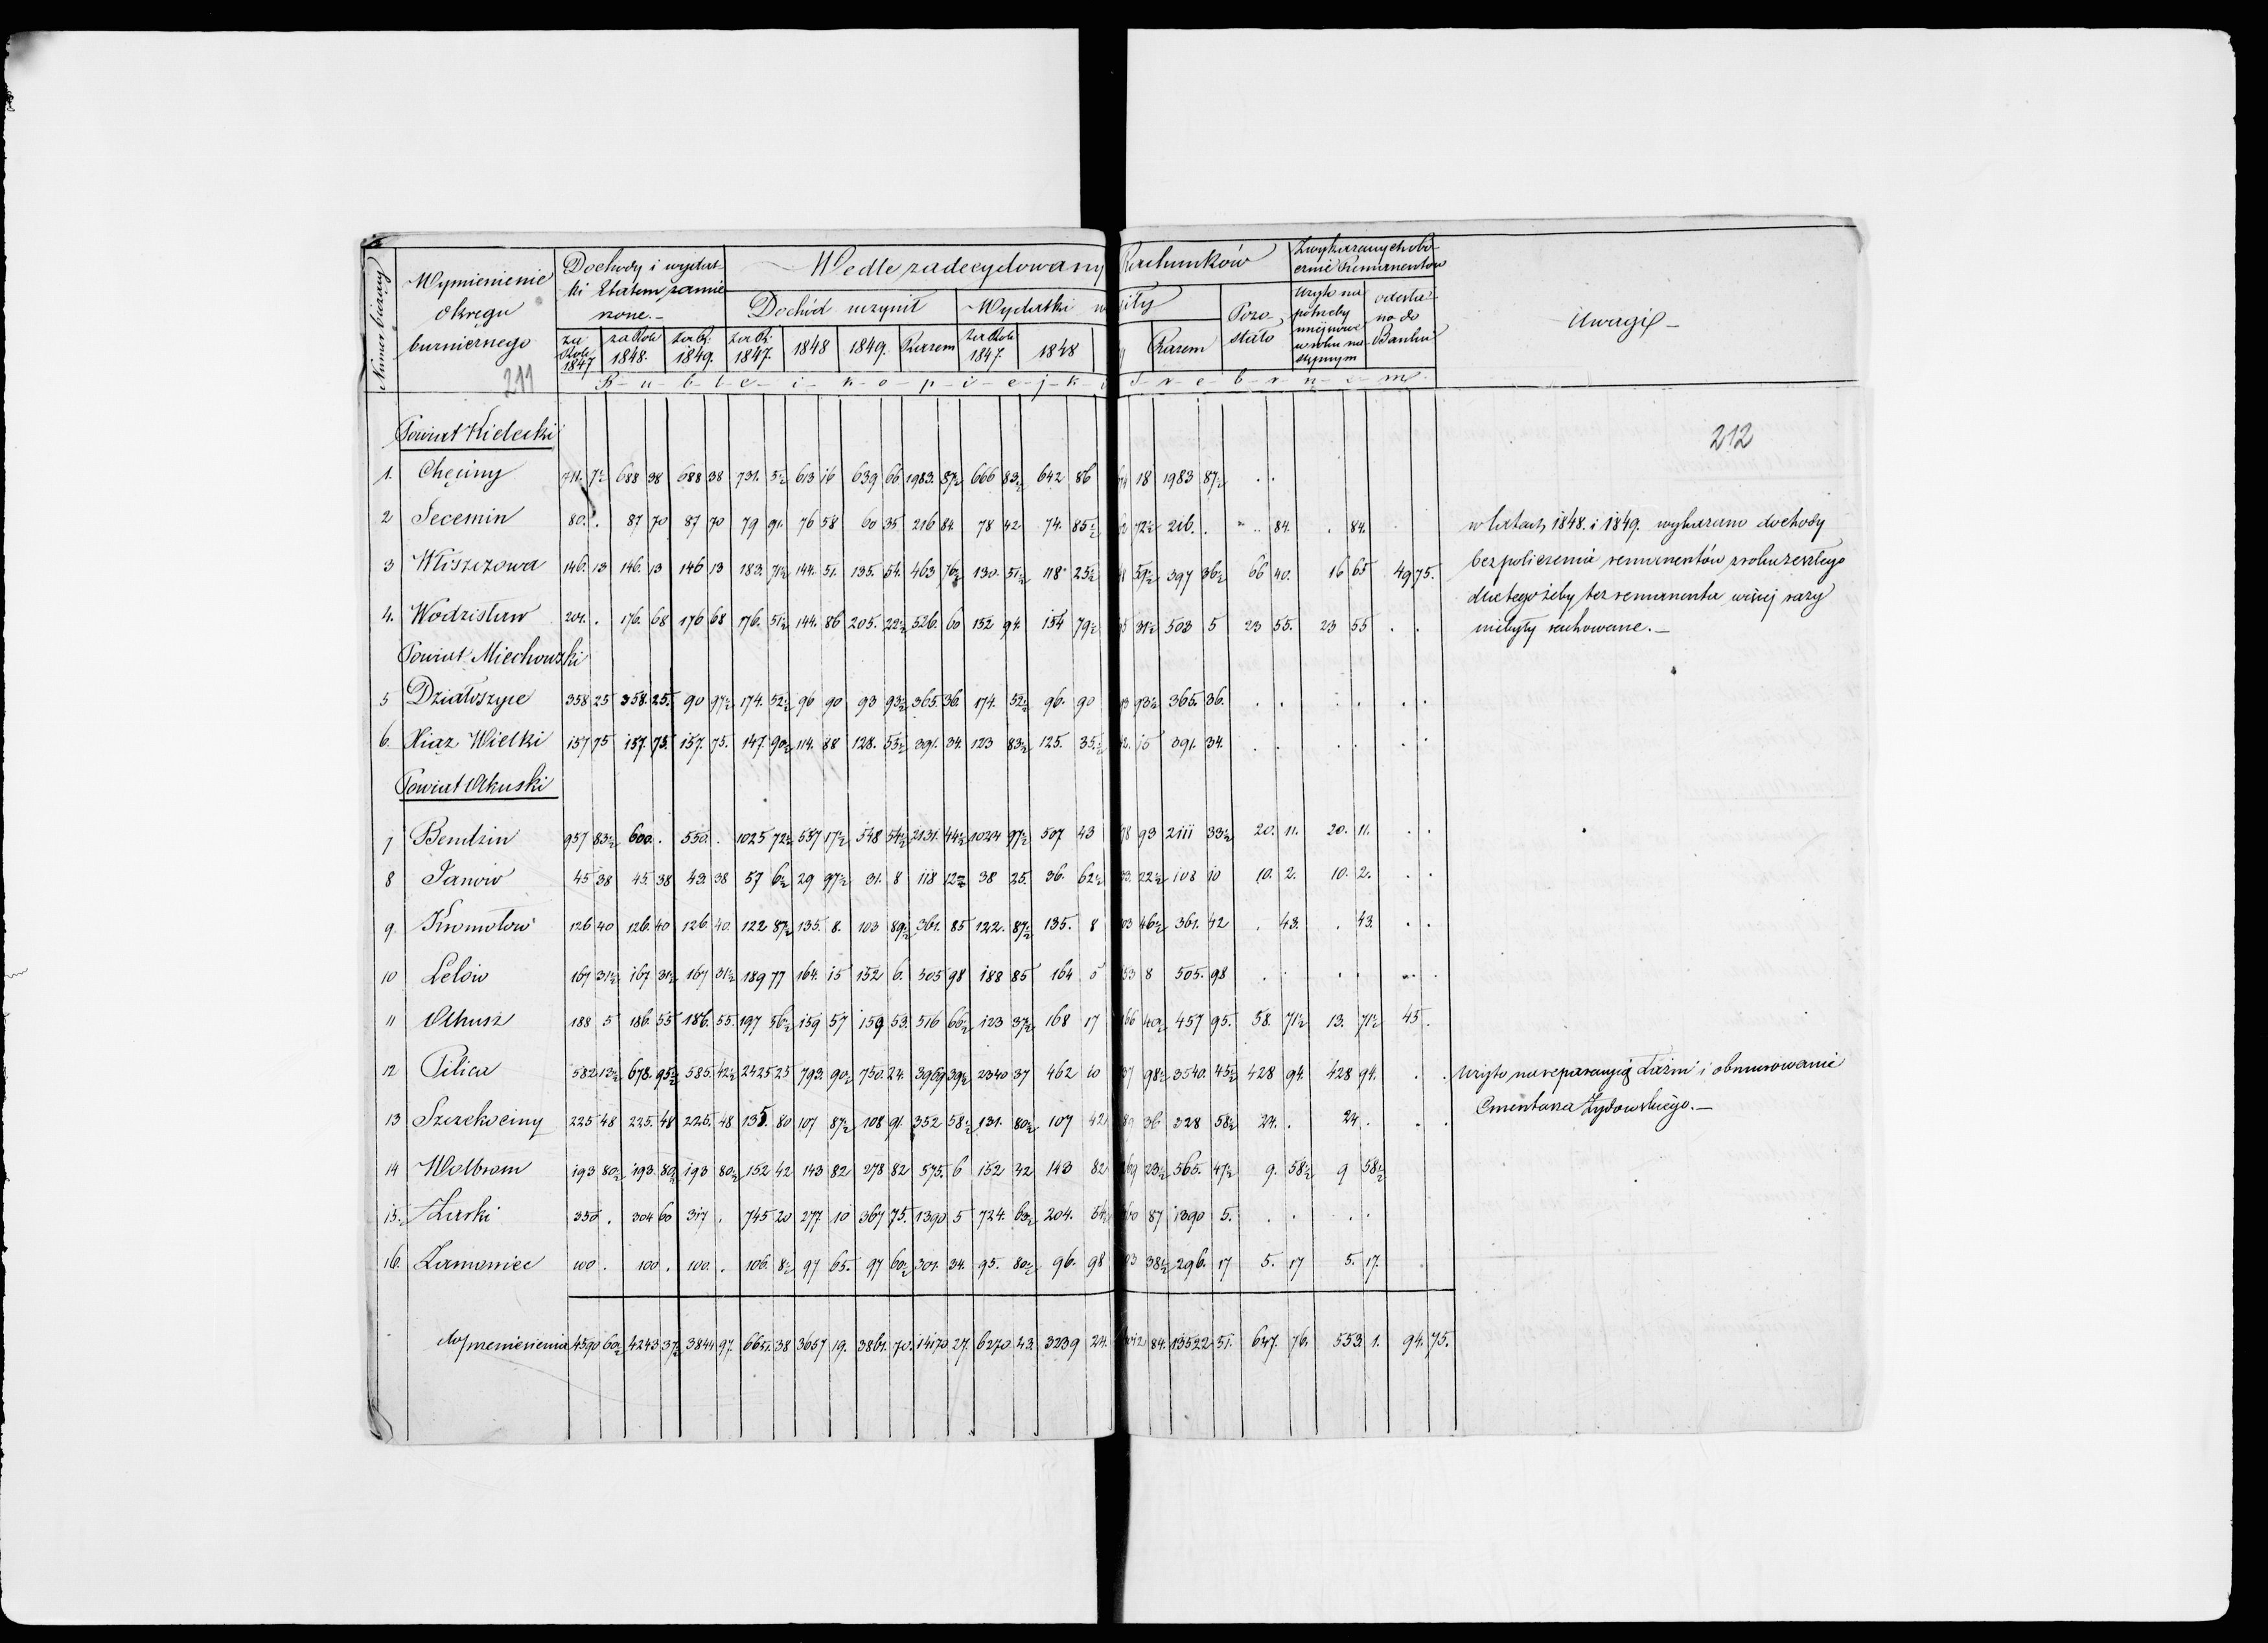 Numer bieżący
Wymienienie
okręgu
bużniczego
211
Dochody i wydat-
ki Etatem zamie
rzone.-
za Rok 1847 za Rok 1848. za R: 1849.
Wedle zadecydowany Rachunków
Dochód uczynił
za R: 1847. 1848 1849. Razem
Wydatki
za Rok 1847. 1848 Razem
Pozo
stało
Z wykazanych obo-
cznie Remanentów
użyto na
potrzeby
miejscowe
w roku na
stępnym
odesła
no do
Banku
Uwagi
R u b l e i k o p i e j k i S r e b r n e m
212
Powiat Kielecki
1. Chęciny 711. 7½ 688 38 688 38 731. 5½ 613 16 639 66 1983. 87½ 666 83½ 642 86 18 1983 87½ . .
2 Secemin 80. . 87 70 87 70 79 91. 76 58 60 35 216 84. 78 42 74. 85½ 72½ 216. . " .. 84. . 84.
3 Włoszczowa 146. 13 146. 13 146 13 183. 71½ 144. 51. 135. 54. 463 76½ 130. 51½ 118 25½ 59½ 397 36½ 66 40. 16 65 49 75.
4. Wodzisław 201. . 176. 68 176 68 176. 51½ 144. 86 205. 22½ 526. 60 152 94. 154 79½ 31½ 503 5 23 55. 23 55 . .
w latach 1848. i 1849. wykazano dochody
bez policzenia remanentów z roku zeszłego
dla tego żeby też remanenta więcej razy
niebyły rachowane.-
Powiat Miechowski
5 Działoszyce 358 25 358. 25. 90 97½ 174. 52½ 96 90 93 93½ 365. 36. 174. 52½ 96. 90 93½ 365. 36. . . . . . .
6. Xiąż Wielki 157 75 157. 75. 157. 75. 147. 90½ 114. 88 128. 55½ 391. 34. 123 83½ 125. 35½ 15 391. 34. . . . . . .
Powiat Olkuski
7 Bendzin 957 83½ 600. . 550. . 1025 72½ 557 17½ 548 54½ 2131. 44½ 1024 97½ 507 43 93 2111 33½ 20. 11. 20. 11. . .
8 Janow 45 38 45. 38 43. 38 57 6½ 29 97½ 31. 8 118 12 38 25. 36. 62½ 22½ 108 10 10. 2. 10. 2. . .
9. Kromołow 126 40 126. 40 126. 40. 122 87½ 135. 8. 103 89½ 361. 85 122. 87½ 135. 8 46½ 361. 42 . 43. . 43. . .
10 Lelów 167 31½ 167 31½ 167 31½ 189 77 164. 15 152 6. 505 98 188 85 164 5 8 505. 98 . . . . .
11 Olkusz 188 5 186. 55 186. 55. 197 56½ 159 57 159 53. 516 66½ 123 37½ 168 17 166 40½ 457 95. 58. 71½ 13. 71½ 45 .
12 Pilica 582 13½ 678. 95½ 585. 42½ 2425 25 793. 90½ 750. 24. 3969 39½ 2340 37 462 10 98½ 3540. 45½ 428 94. 428 94. . .
użyto na reparacyią Łaźni i obmurowanie
Cmentarza Żydowskiego.-
13 Szczekociny 225 48 225. 48 225. 48 135. 80 107 87½ 108 91. 352 58½ 131. 80½ 107 42 89 36 328 58½ 24. . 24 . . .
14 Wolbrom 193 80½ 193. 80½ 193 80½ 152 42 143 82 278 82 575. 6 152 42 143 82 269 23½ 565. 47½ 9. 58½ 9 58½
15. Żarki 350 . 304 60 317 . 745 20 277 10 367 75. 1390 5 724. 63½ 204. 54½ 87 1390 5. . . . .
16. Żarnowiec 100 . 100 . 100. . 106. 8½ 97 65. 97 60½ 301. 34. 95. 80½ 96. 98 38½ 296. 17 5. 17 5. 17.
do przeniesienia 4590 60½ 4243 37½ 3844 97. 6651. 38 3657 19. 3861. 70. 14170 27. 6270 43. 3239 24. 84. 13522 51. 647. 76. 553 1. 94. 75.